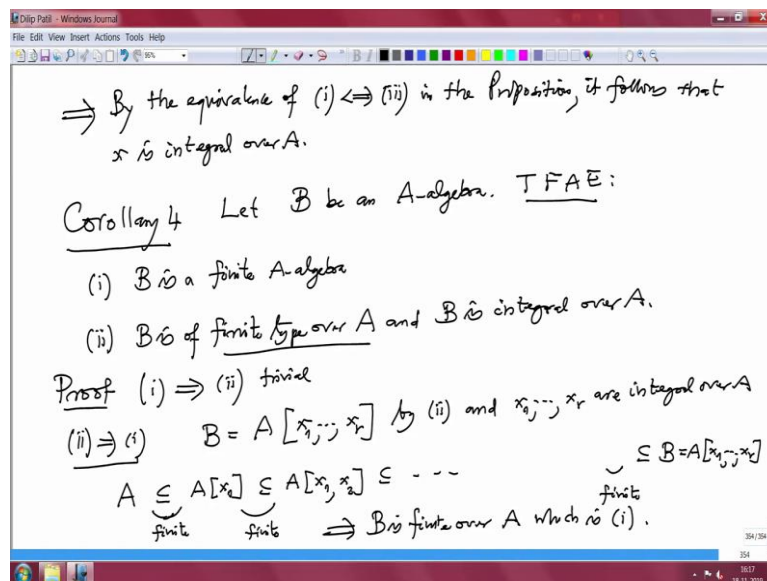 Dilip Patil - Windows Journal
File Edit View Insert Actions Tools Help
96%
B I
⇒ By the equivalence of (i) <=> (iii) in the Proposition, it follows that
x is integral over A.
Corollary 4 Let B be an A-algebra. TFAE:
(i) B is a finite A-algebra
(ii) B is of finite type over A and B is integral over A.
Proof (i) ⇒ (ii) trivial
(ii) ⇒ (i) B = A[x₁,..., xᵣ] by (ii) and x₁,..., xᵣ are integral over A
A ⊆ A[x₁] ⊆ A[x₁, x₂] ⊆ - - - ⊆ B = A[x₁,..., xᵣ]
finite finite finite
⇒ B is finite over A which is (i).
354/354
354
16:17
18-11-2019